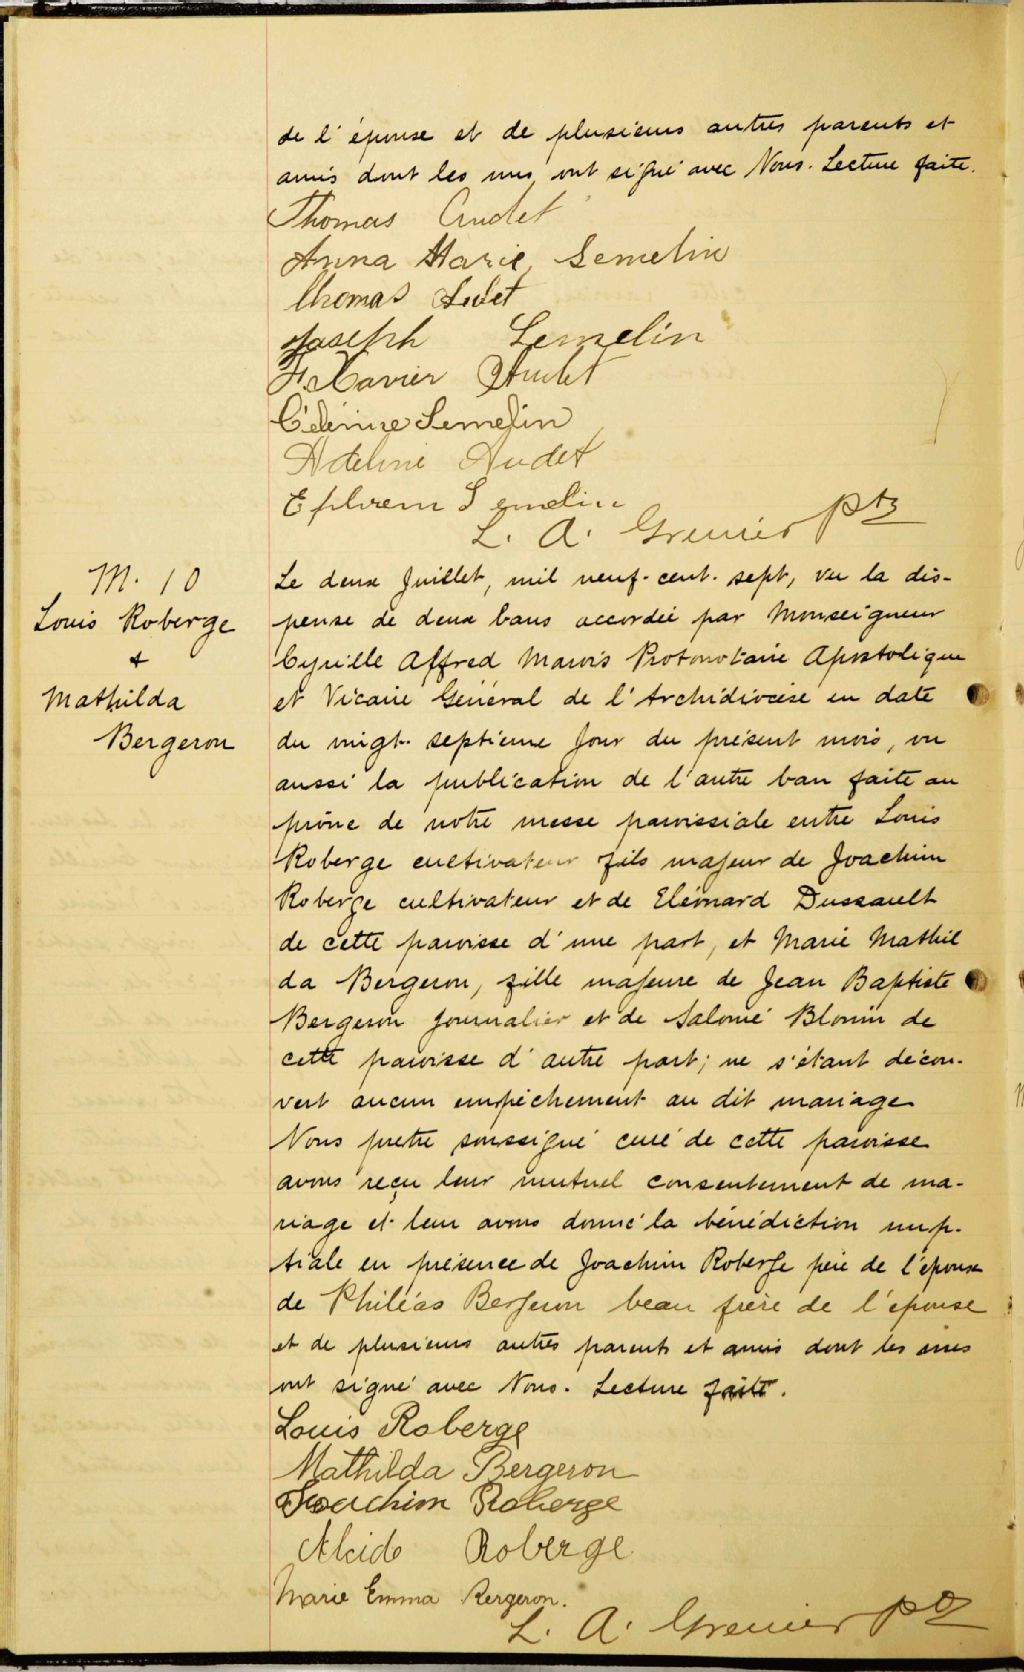 de l'épouse et de plusieurs autres parents et
amis dont les uns ont signé avec Nous. Lecture faite.
Thomas Audet
Anna Marie Lemelin
Thomas Audet
Joseph Lemelin
F. Xavier Audet
Célénire Lemelin
Adeline Audet
Ephrem Lemelin
L. A. Grenier Ptr
M. 10
Louis Roberge
+
Mathilda
Bergeron
Le deux Juillet, mil neuf-cent-sept, vu la dis-
pense de deux bans accordée par Monseigneur
Cyrille Alfred Marois Protonotaire Apostolique
et Vicaire Général de l'Archidiocèse en date
du vingt-septieme jour du présent mois, vu
aussi la publication de l'autre ban faite au
prône de notre messe paroissiale entre Louis
Roberge cultivateur fils majeur de Joachim
Roberge cultivateur et de Eléonard Dussault
de cette paroisse d'une part, et Marie Mathil
da Bergeron, fille majeure de Jean Baptiste
Bergeron journalier et de Salomé Blouin de
cette paroisse d'autre part; ne s'étant décou-
vert aucun empêchement au dit mariage
Nous pretre soussigné curé de cette paroisse
avons reçu leur mutuel consentement de ma-
riage et leur avons donné la bénédiction nup-
tiale en présence de Joachim Roberge père de l'époux
de Philéas Bergeron beau frère de l'épouse
et de plusieurs autres parents et amis dont les uns
ont signé avec Nous. Lecture faite.
Louis Roberge
Mathilda Bergeron
Joachim Roberge
Alcide Roberge
Marie Emma Bergeron.
L. A. Grenier Ptr